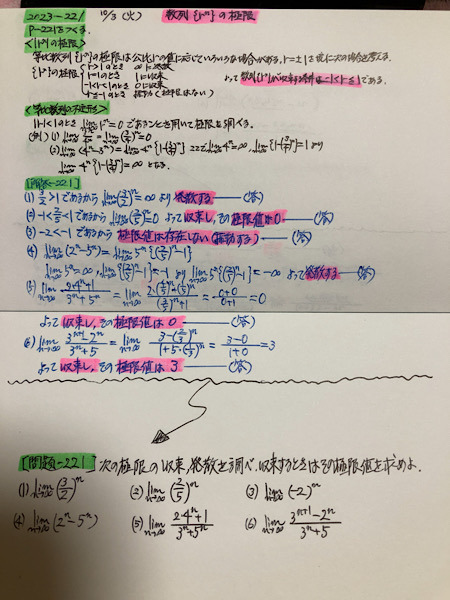 2023-221 10/3 (火) 数列{rⁿ}の極限
P-221をとく。
<{rⁿ}の極限>
等比数列{rⁿ}の極限は公比rの値に応じていろいろな場合がある。r=±1を境に次の場合を考える。
{rⁿ}の極限 r>1のとき ∞に発散
r=1のとき 1に収束
-1<r<1のとき 0に収束 よって数列{rⁿ}が収束する条件は -1<r≦1である。
r≦-1のとき 振動(極限はない)
|r|<1のとき lim n→∞ rⁿ=0であることを用いて極限を調べる。
(2) lim n→∞ (4ⁿ-3ⁿ)=lim n→∞ 4ⁿ{1-(3/4)ⁿ} ここで lim n→∞ 4ⁿ=∞, lim n→∞ {1-(3/4)ⁿ}=1より
lim n→∞ 4ⁿ{1-(3/4)ⁿ}=∞ となる。
[問題-221]
(1) 3/2>1であるから lim n→∞ (3/2)ⁿ=∞ より発散する ―(答)
(2) -1<2/5<1であるから lim n→∞ (2/5)ⁿ=0 よって収束し、その極限値は0 ―(答)
(3) -2<-1であるから 極限値は存在しない(振動する) ―(答)
(4) lim n→∞ (2ⁿ-5ⁿ)=lim n→∞ 5ⁿ{(2/5)ⁿ-1}
lim n→∞ 5ⁿ=∞, lim n→∞ {(2/5)ⁿ-1}=-1 より lim n→∞ 5ⁿ{(2/5)ⁿ-1}=-∞ よって発散する ―(答)
よって収束し、その極限値は 0 ―(答)
(6) lim n→∞ (3ⁿ⁺¹-2ⁿ)/(3ⁿ+5) = lim n→∞ (3-(2/3)ⁿ)/(1+5・(1/3)ⁿ) = (3-0)/(1+0) = 3
よって収束し、その極限値は 3 ―(答)
[問題-221] 次の極限の収束、発散を調べ、収束するときはその極限値を求めよ。
(1) lim n→∞ (3/2)ⁿ (2) lim n→∞ (2/5)ⁿ (3) lim n→∞ (-2)ⁿ
(4) lim n→∞ (2ⁿ-5ⁿ) (5) lim n→∞ (2・4ⁿ+1)/(3ⁿ+5ⁿ) (6) lim n→∞ (3ⁿ⁺¹-2ⁿ)/(3ⁿ+5)